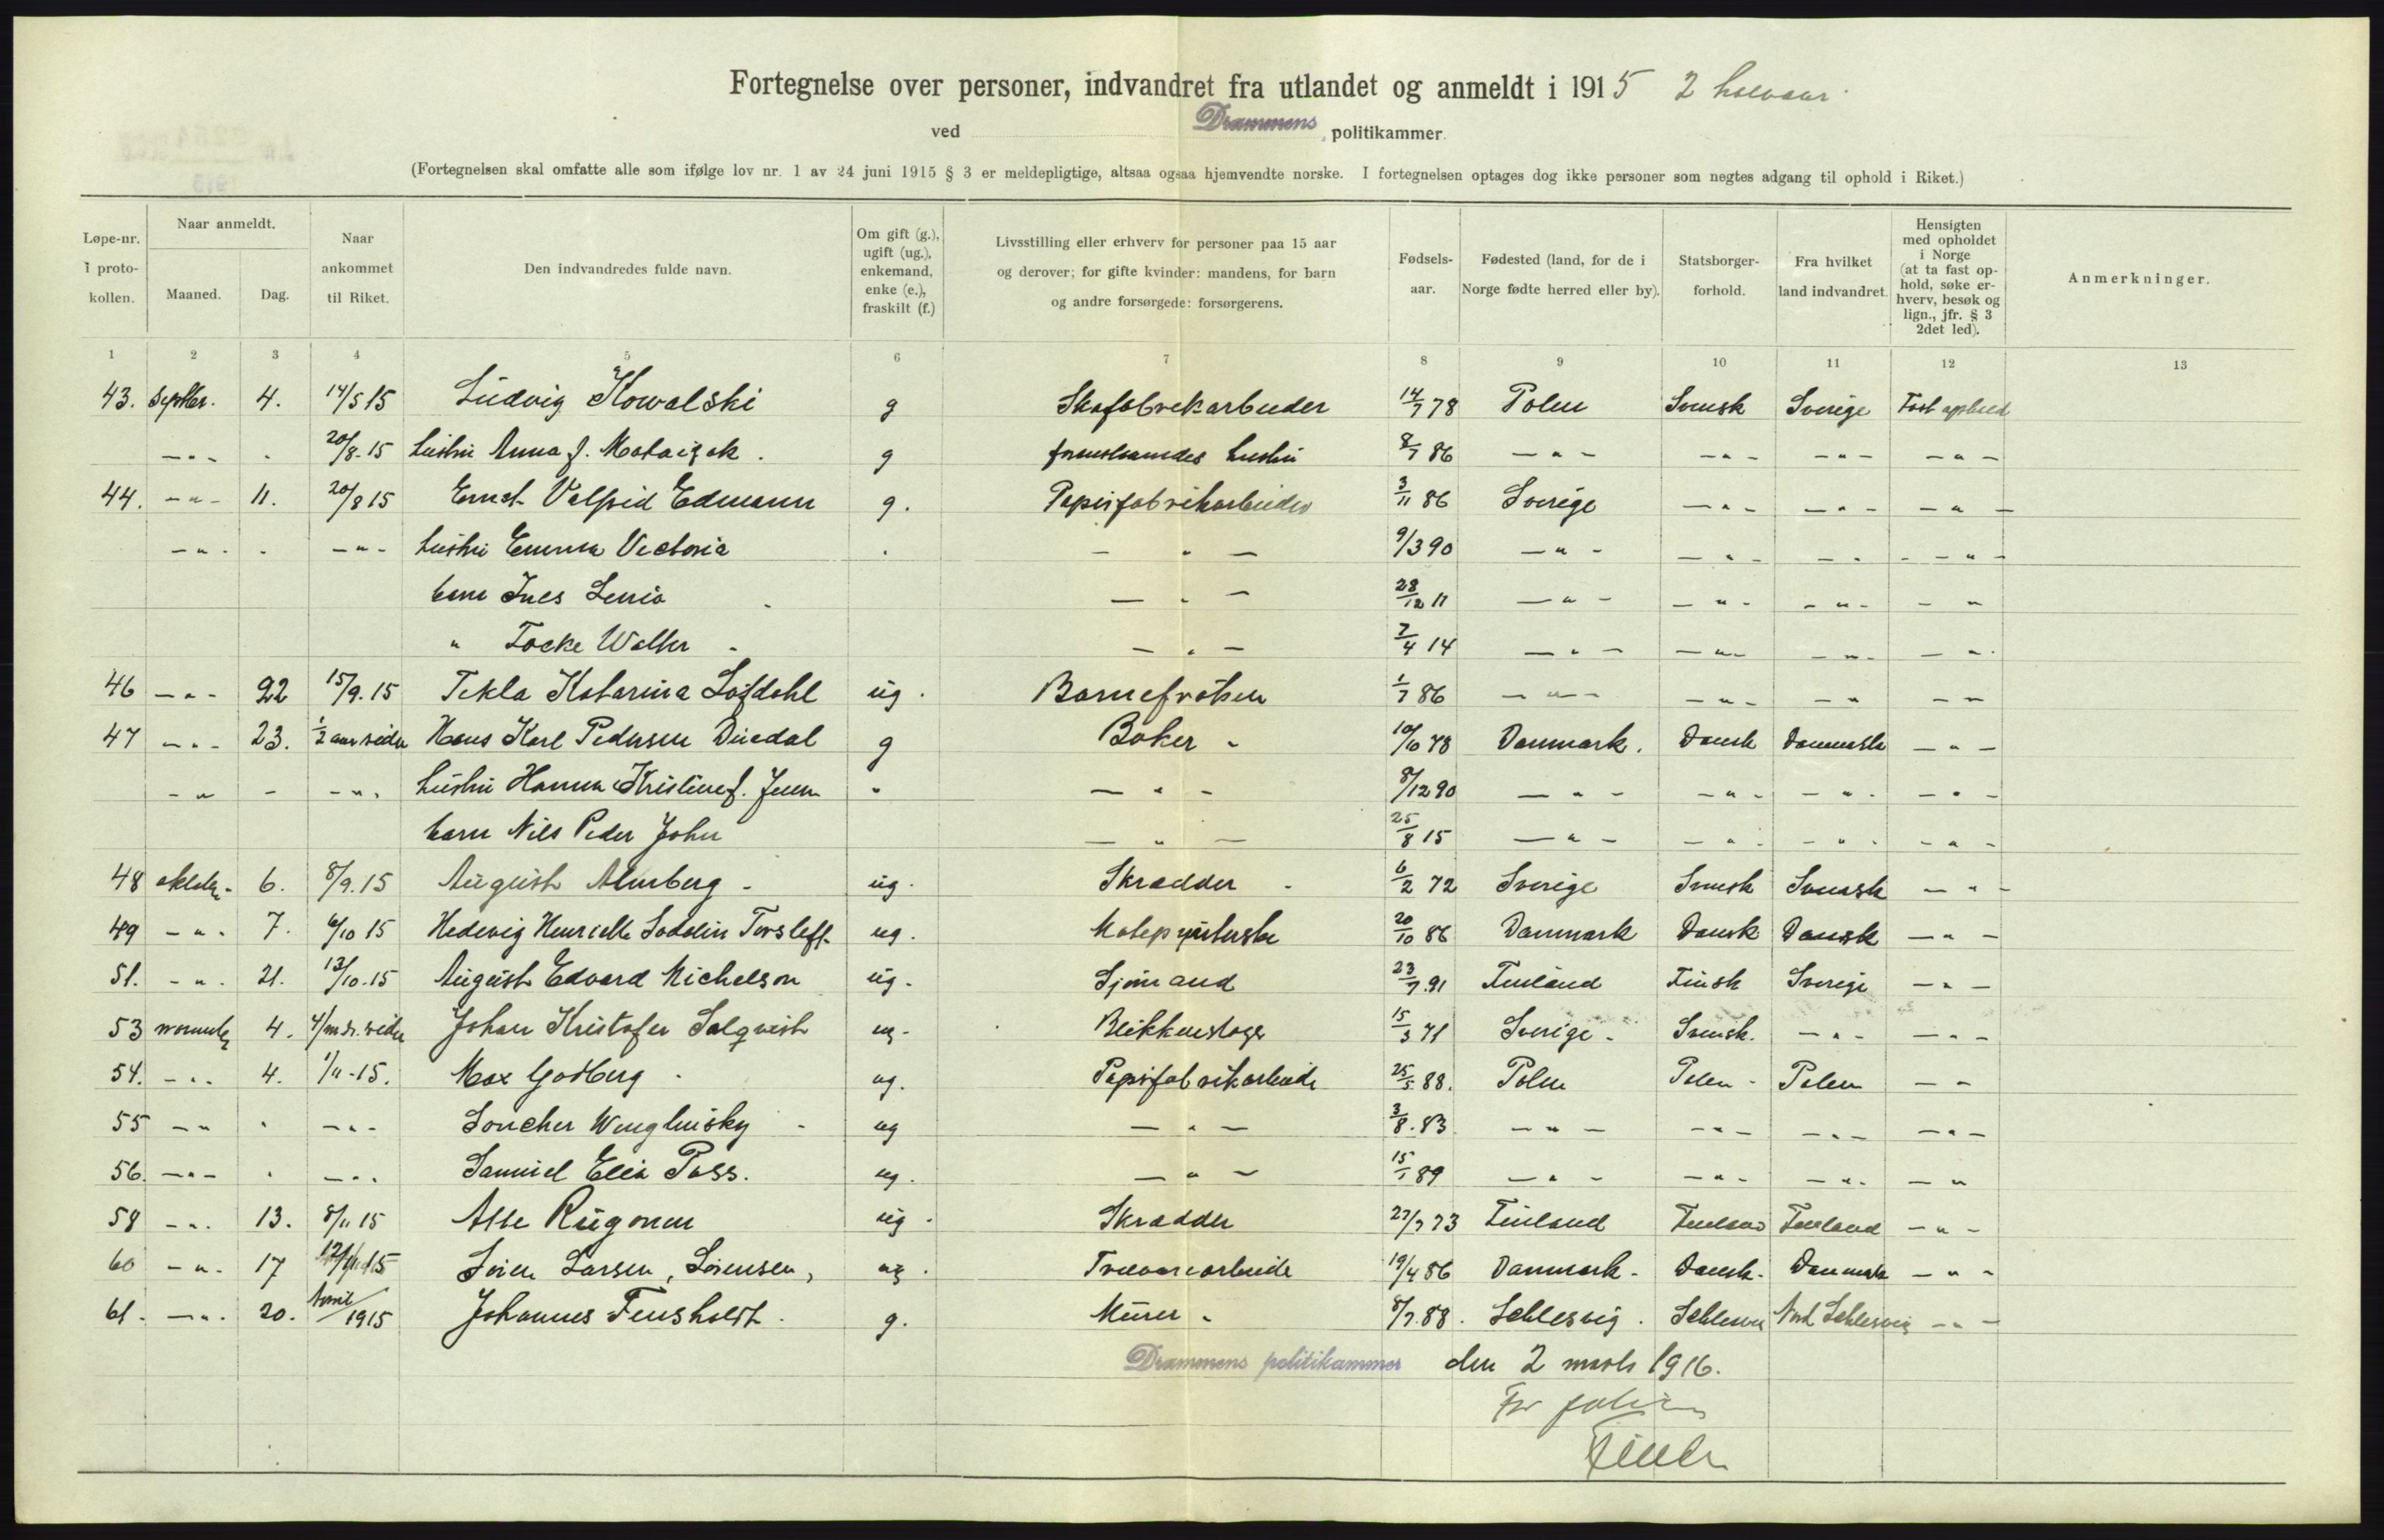 Fortegnelse over personer, indvandret fra utlandet og anmeldt i 1915 2 halvaar.
ved Drammens politikammer.
(Fortegnelsen skal omfatte alle som ifølge lov nr. 1 av 24 juni 1915 § 3 er meldepligtige, altsaa ogsaa hjemvendte norske. I fortegnelsen optages dog ikke personer som negtes adgang til ophold i Riket.)
Løpe-nr. i proto-kollen. Naar anmeldt. Maaned. Dag. Naar ankommet til Riket. Den indvandredes fulde navn. Om gift (g.), ugift (ug.), enkemand, enke (e.), fraskilt (f.) Livsstilling eller erhverv for personer paa 15 aar og derover; for gifte kvinder: mandens, for barn og andre forsørgede: forsørgerens. Fødsels-aar. Fødested (land, for de i Norge fødte herred eller by). Statsborger-forhold. Fra hvilket land indvandret. Hensigten med opholdet i Norge (at ta fast op-hold, søke er-hverv, besøk og lign., jfr. § 3 2det led). Anmerkninger.
1 2 3 4 5 6 7 8 9 10 11 12 13
43. Septbr. 4. 14/5 15 Ludvig Kowalski g Skofabrikarbeider 14/7 78 Polen Svensk Sverige Fast ophold
-"- . 20/8-15 hustru Anna f. g hustru 8/7 86 -"- -"- -"- -"-
44. -"- 11. 20/8 15 Ernst Valfrid Edmann g. Papirfabrikarbeider 3/11 86 Sverige -"- -"- -"-
-"- . -"- hustru Emma Victoria . -"- 9/3 90 -"- -"- -"- -"-
barn Ines -"- 28/12 11 -"- -"- -"- -"-
" Tocke Walter -"- 7/4 14 -"- -"- -"- -"-
46 -"- 22 15/9.15 Tekla Katarina Löfdahl ug. Barnefrøken 1/7 86 -"- -"- -"- -"-
47 -"- 23. 1/2 aar siden Hans Karl Pedersen Duedal g Baker 10/10 78 Danmark. Dansk Danmark -"-
-"- - -"- hustru Hanna Kristine f. " -"- 8/12 90 -"- -"- -"- -"-
barn Nils Peder John -"- 25/8 15 -"- -"- -"- -"-
48 oktober 6. 8/9.15 August Almberg ug. Skrædder 6/2 72 Sverige Svensk Svensk -"-
49 -"- 7. 6/10 15 Hedevig Henriette Torsleff ug. 20/10 86 Danmark Dansk Dansk -"-
51. -"- 21. 13/10.15 August Edvard Michelson ug. Sjømand 23/7.91 Finland Finsk Sverige -"-
53 november 4. 4/mdr. siden Johan Kristofer Salqvist ug. Blikkenslager 15/3 71 Sverige Svensk. -"- -"-
54. -"- 4. 1/11-15. Max Godberg ug. Papirfabrikarbeider 25/5 88. Polen Polen Polen -"-
55 -"- " -"- Soucher Wenglinsky ug -"- 3/8.83 -"- -"- -"- -"-
56. -"- " -"- Samuel Elia Pass. ug. -"- 15/1 89 -"- -"- -"- -"-
58 -"- 13. 8/11 15 Rugonen ug. Skrædder 27/7 73 Finland Finland Finland -"-
60 -"- 17 12/11 15 Sören Larsen, Sörensen, ug. Trævarearbeider 19/4 86 Danmark. Dansk. Danmark -"-
61. -"- 20. April/1915 Johannes Fensholdt. g. Murer 8/7.88. Schlesvig. Schlesvig Nord Schlesvig -"-
Drammens politikammer den 2 marts 1916.
For